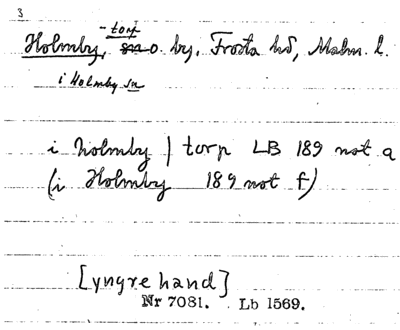 3
-torp
Holmby, sn o. by, Frosta hd, Malm. l.
i Holmby sn
i holmby | torp LB 189 not a
(i Holmby 189 not f)
[yngre hand]
Nr 7081. Lb 1569.